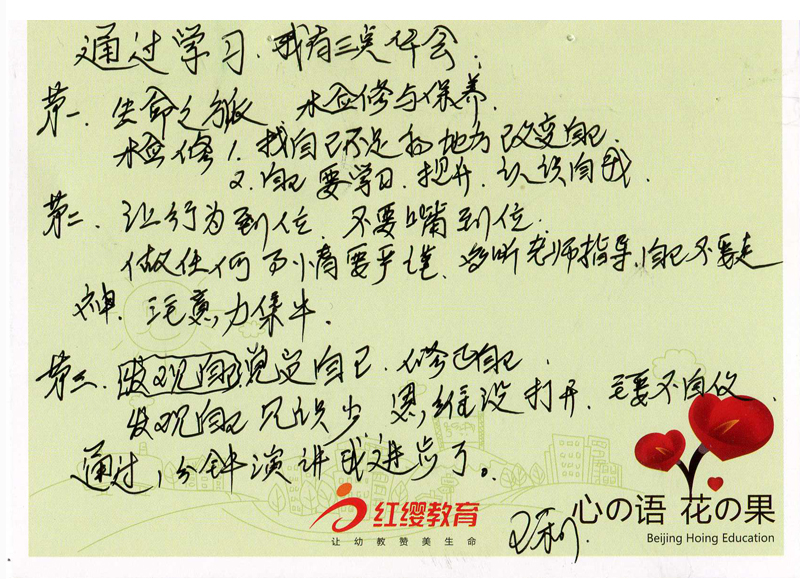 通过学习,我有三点体会,
第一、生命之舟 检修与保养.
检修1.找自己不足的地方改变自己.
2.自己要学习.提升.认识自我.
第二、让行为到位,不要嘴到位.
做任何事情要严谨.多听老师指导,自己不要走
神.注意力集中.
第三、发现自己,说定自己,修正自己.
发现自己见识少 思维没打开、主要不自信.
通过1分钟演讲我进步了。
红缨教育
让幼教赞美生命
心の语 花の果
Beijing Hoing Education